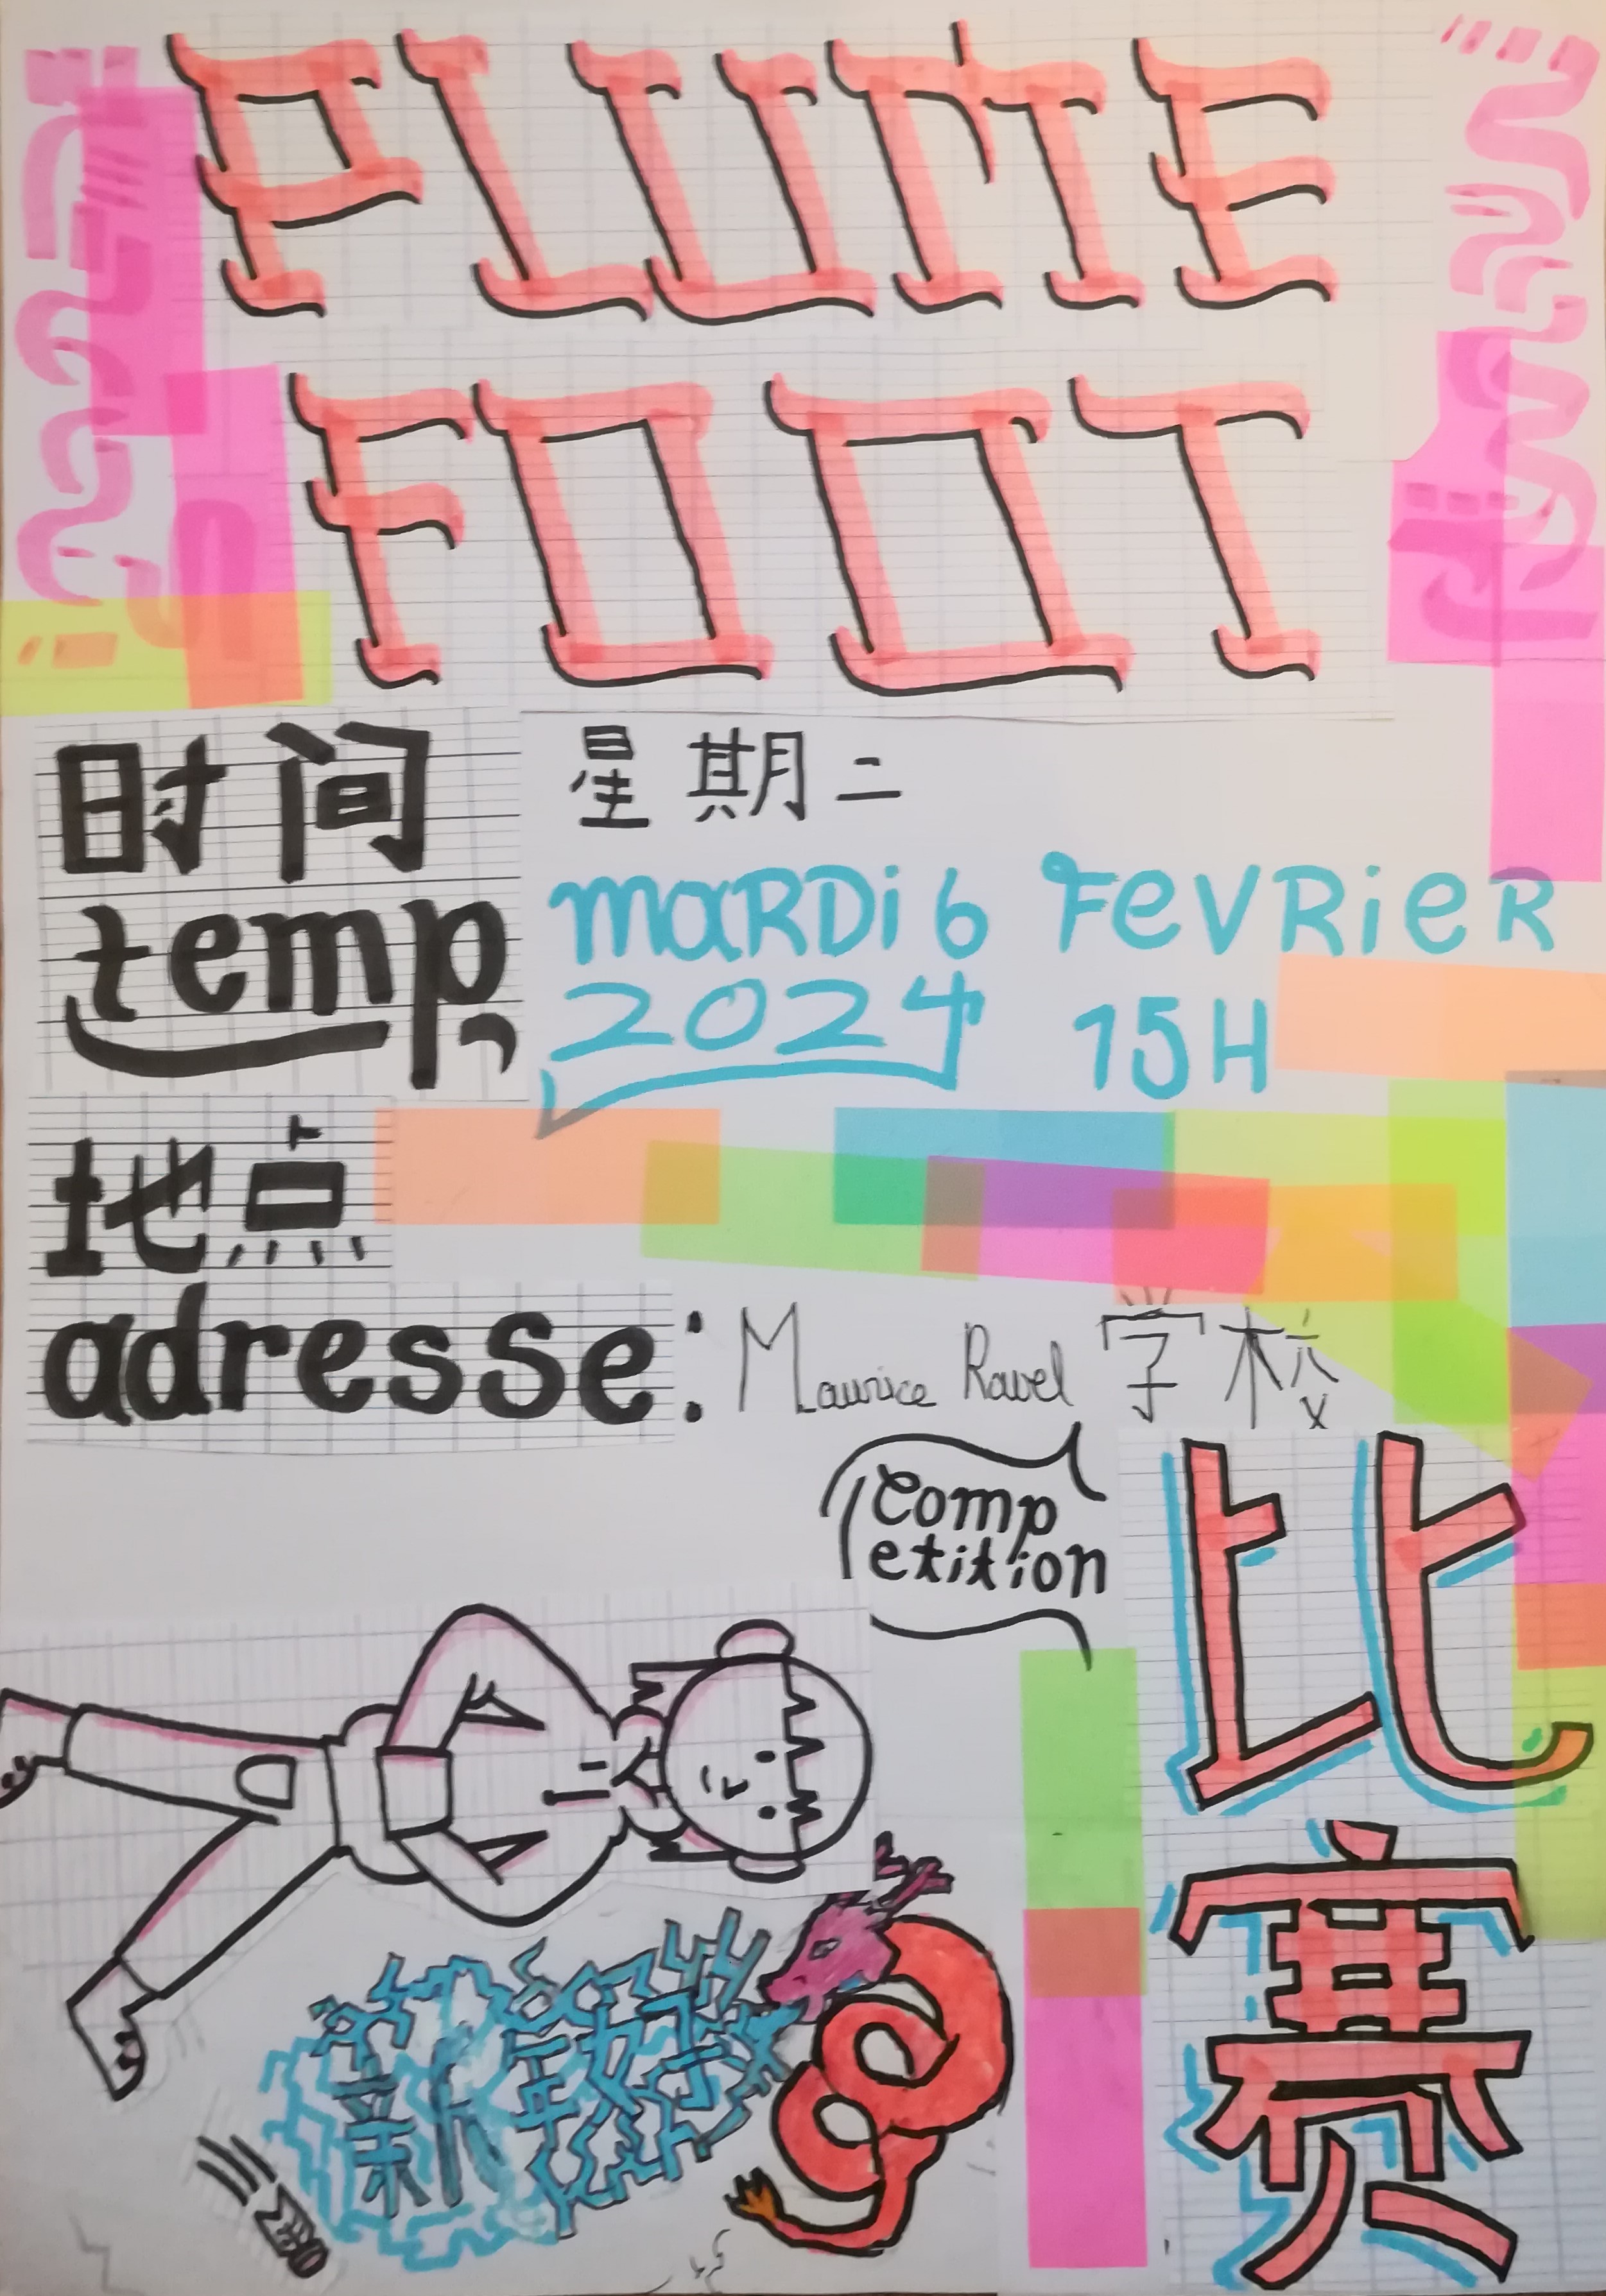 PLUME
FOOT
时间
temp
星期二
MARDi 6 FeVRieR
2024 15H
地点
adresse: Maurice Ravel 学校
Comp
etition
比
赛
新